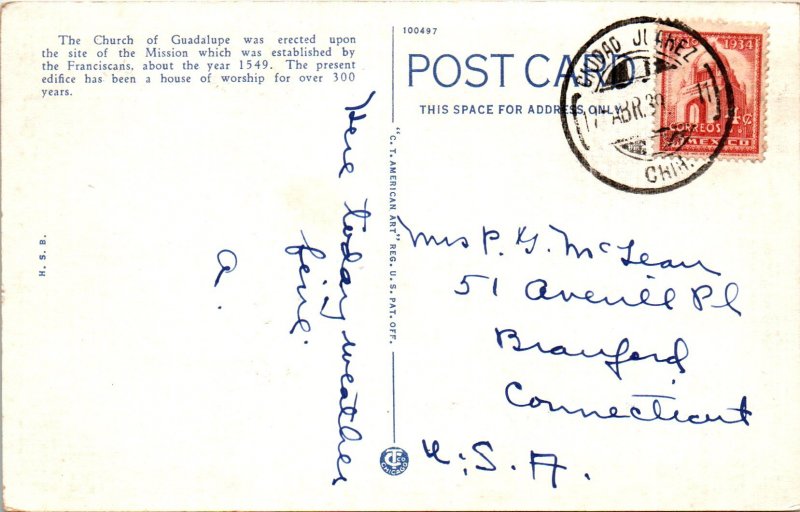 The Church of Guadalupe was erected upon
the site of the Mission which was established by
the Franciscans, about the year 1549. The present
edifice has been a house of worship for over 300
years.
H. S. B.
Here today weather
fine.
a.
"C. T. AMERICAN ART" REG. U. S. PAT. OFF.
100497
POST CARD
THIS SPACE FOR ADDRESS ONLY
CIUDAD JUAREZ
17 ABR. 39
CHIH.
1934
4¢
CORREOS
MEXICO
Mrs P. G. McLean
51 Averill Pl
Branford
Connecticut
U.S.A.